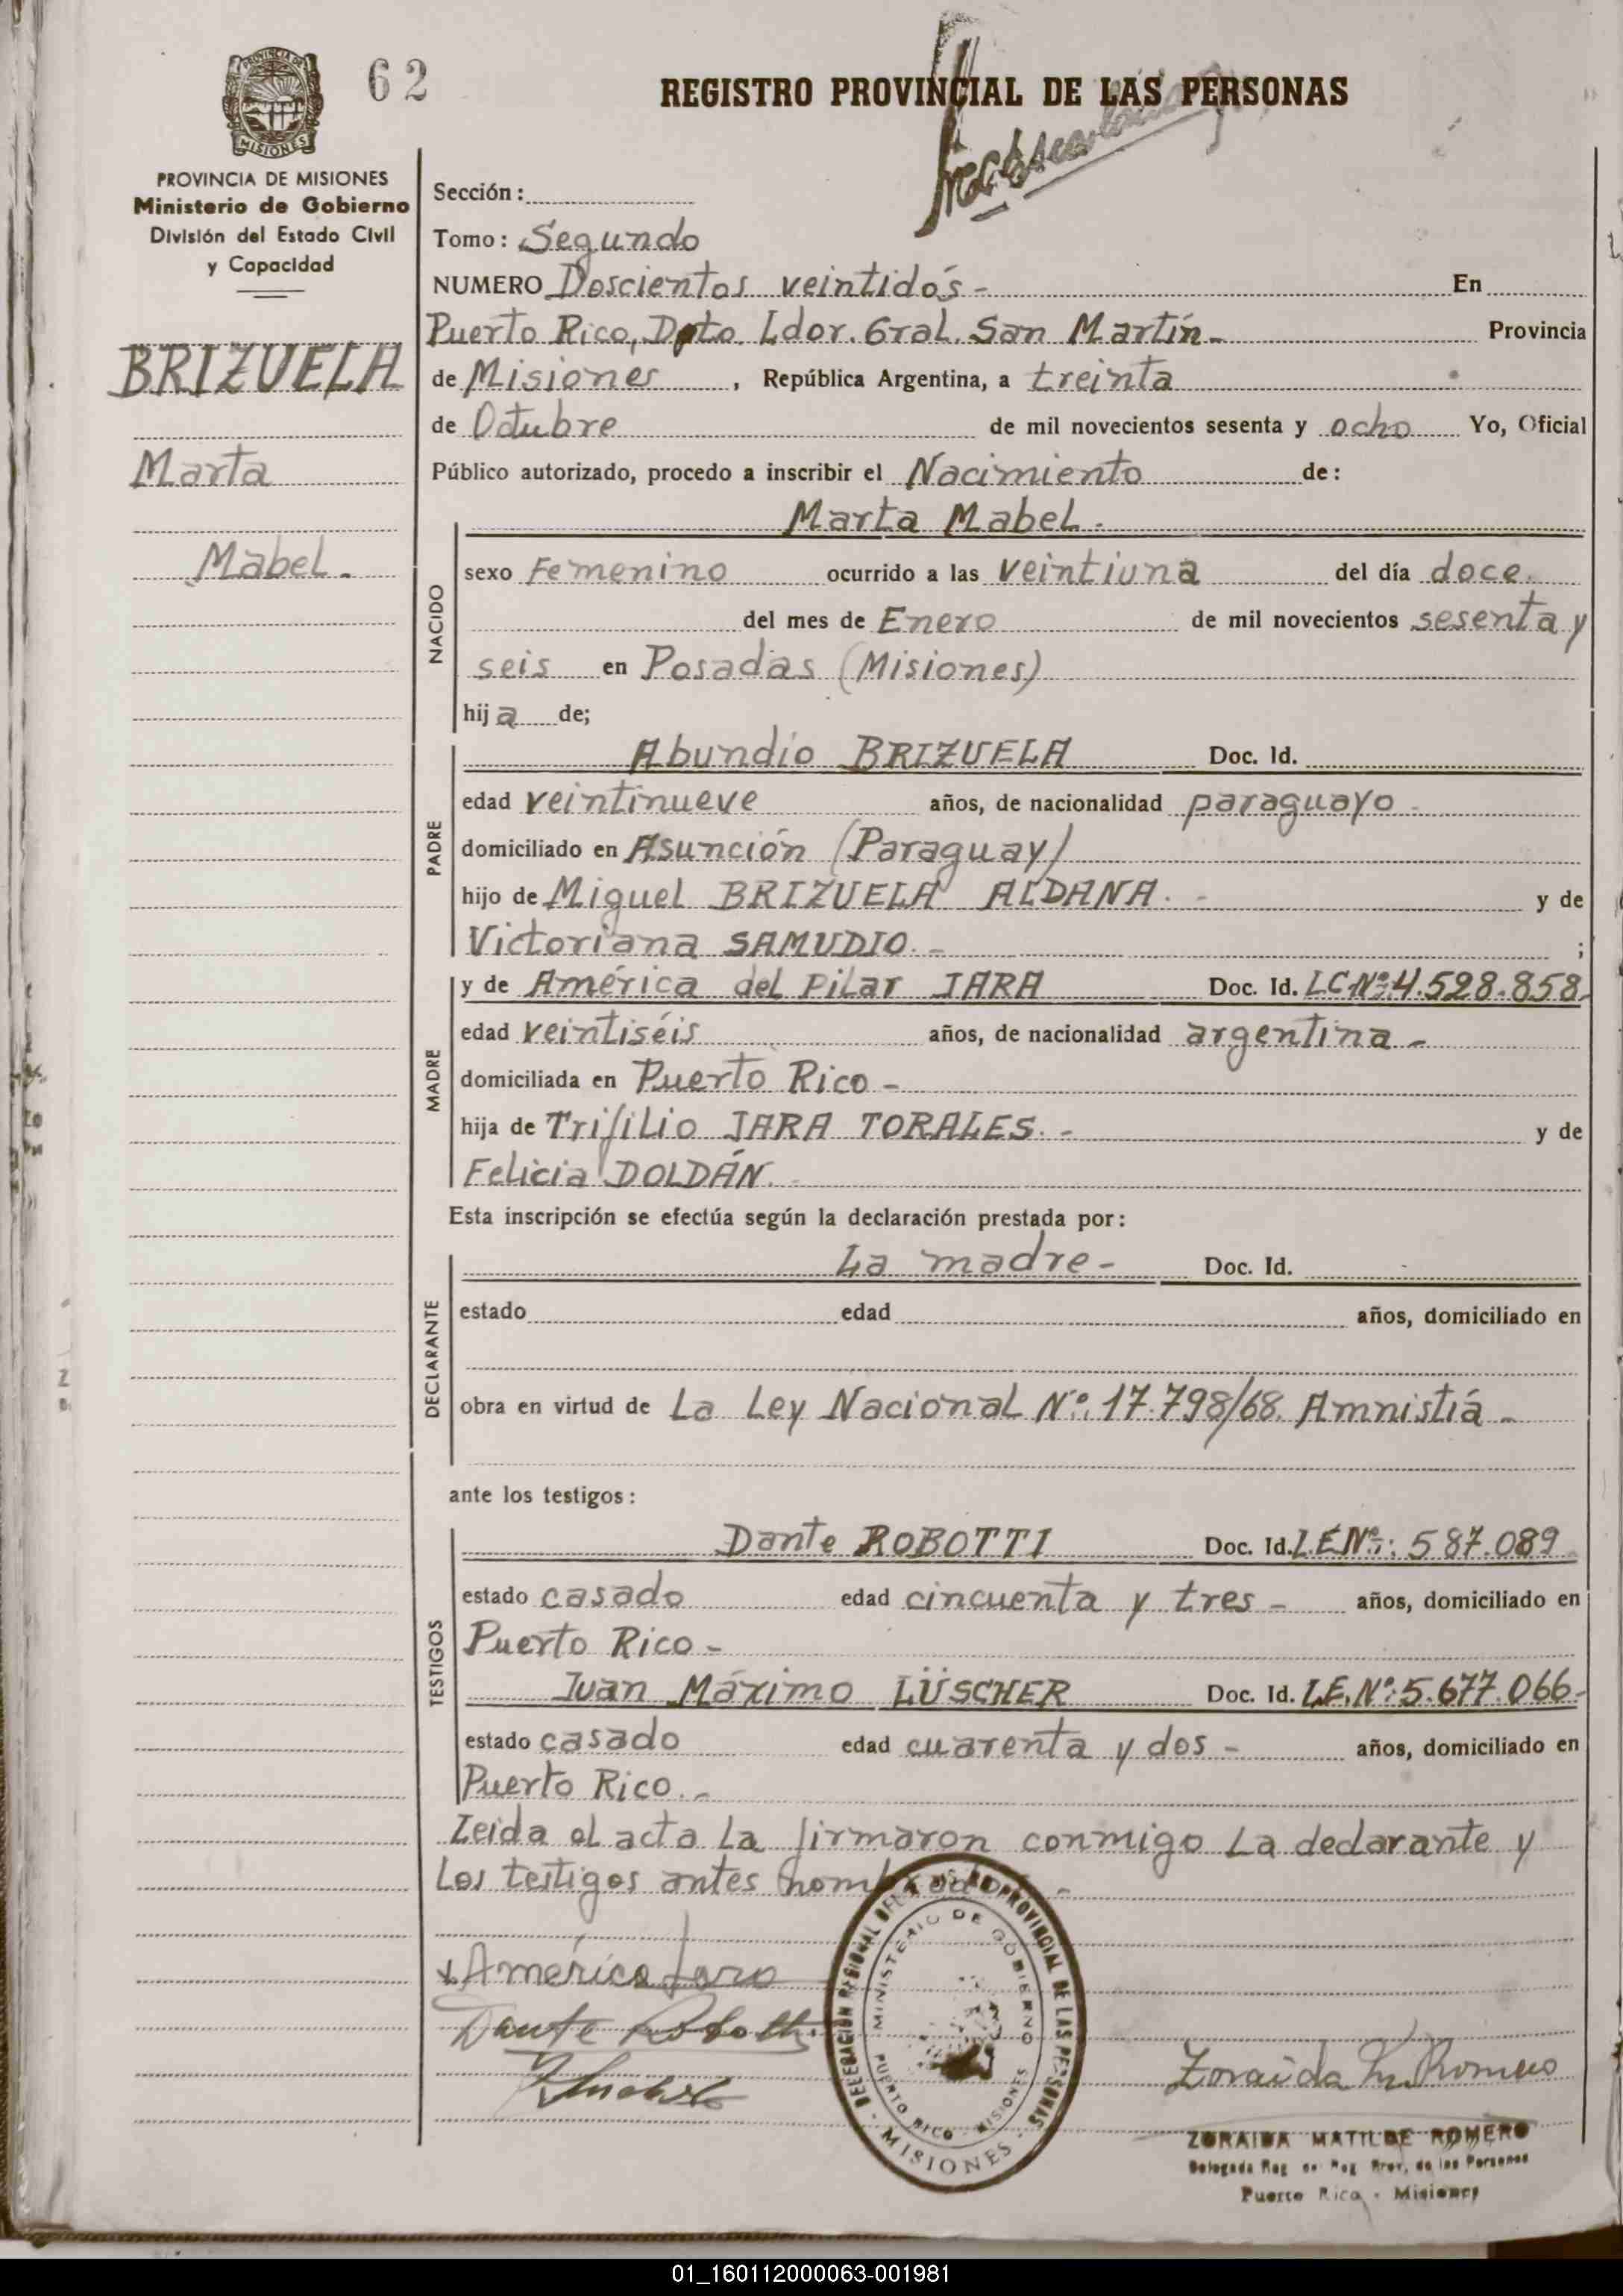 62
REGISTRO PROVINCIAL DE LAS PERSONAS
PROVINCIA DE MISIONES
Ministerio de Gobierno
División del Estado Civil
y Capacidad
BRIZUELA
Marta
Mabel.
Sección:
Tomo: Segundo
NUMERO Doscientos veintidós - En
Puerto Rico, Dpto. Ldor. Gral. San Martín - Provincia
de Misiones, República Argentina, a treinta
de Octubre de mil novecientos sesenta y ocho Yo, Oficial
Público autorizado, procedo a inscribir el Nacimiento de:
NACIDO
Marta Mabel.
sexo Femenino ocurrido a las veintiuna del día doce.
del mes de Enero de mil novecientos sesenta y
seis en Posadas (Misiones)
hija de;
PADRE
Abundio BRIZUELA Doc. Id.
edad veintinueve años, de nacionalidad paraguayo -
domiciliado en Asunción (Paraguay)
hijo de Miguel BRIZUELA ALDANA. - y de
Victoriana SAMUDIO. - ;
MADRE
y de América del Pilar JARA Doc. Id. LC.Nº:4.528.858-
edad veintiséis años, de nacionalidad argentina -
domiciliada en Puerto Rico -
hija de Trifilio JARA TORALES. - y de
Felicia DOLDÁN. -
Esta inscripción se efectúa según la declaración prestada por:
DECLARANTE
La madre - Doc. Id.
estado edad años, domiciliado en
obra en virtud de La Ley Nacional Nº: 17.798/68. Amnistiá -
ante los testigos:
TESTIGOS
Dante ROBOTTI Doc. Id. L.E.Nº: 587.089
estado casado edad cincuenta y tres - años, domiciliado en
Puerto Rico -
Juan Máximo LÜSCHER Doc. Id. L.E.Nº:5.677.066-
estado casado edad cuarenta y dos - años, domiciliado en
Puerto Rico. -
Leida el acta la firmaron conmigo la declarante y
los testigos antes nombrados -
América Jara
Dante Robotti
Zoraida M. Romero
DELEGACION REGIONAL DEL REGISTRO PROVINCIAL DE LAS PERSONAS
MINISTERIO DE GOBIERNO
PUERTO RICO - MISIONES
- MISIONES -
ZORAIDA MATILDE ROMERO
Delegada Reg. de Reg. Prov. de las Personas
Puerto Rico - Misiones
01_160112000063-001981